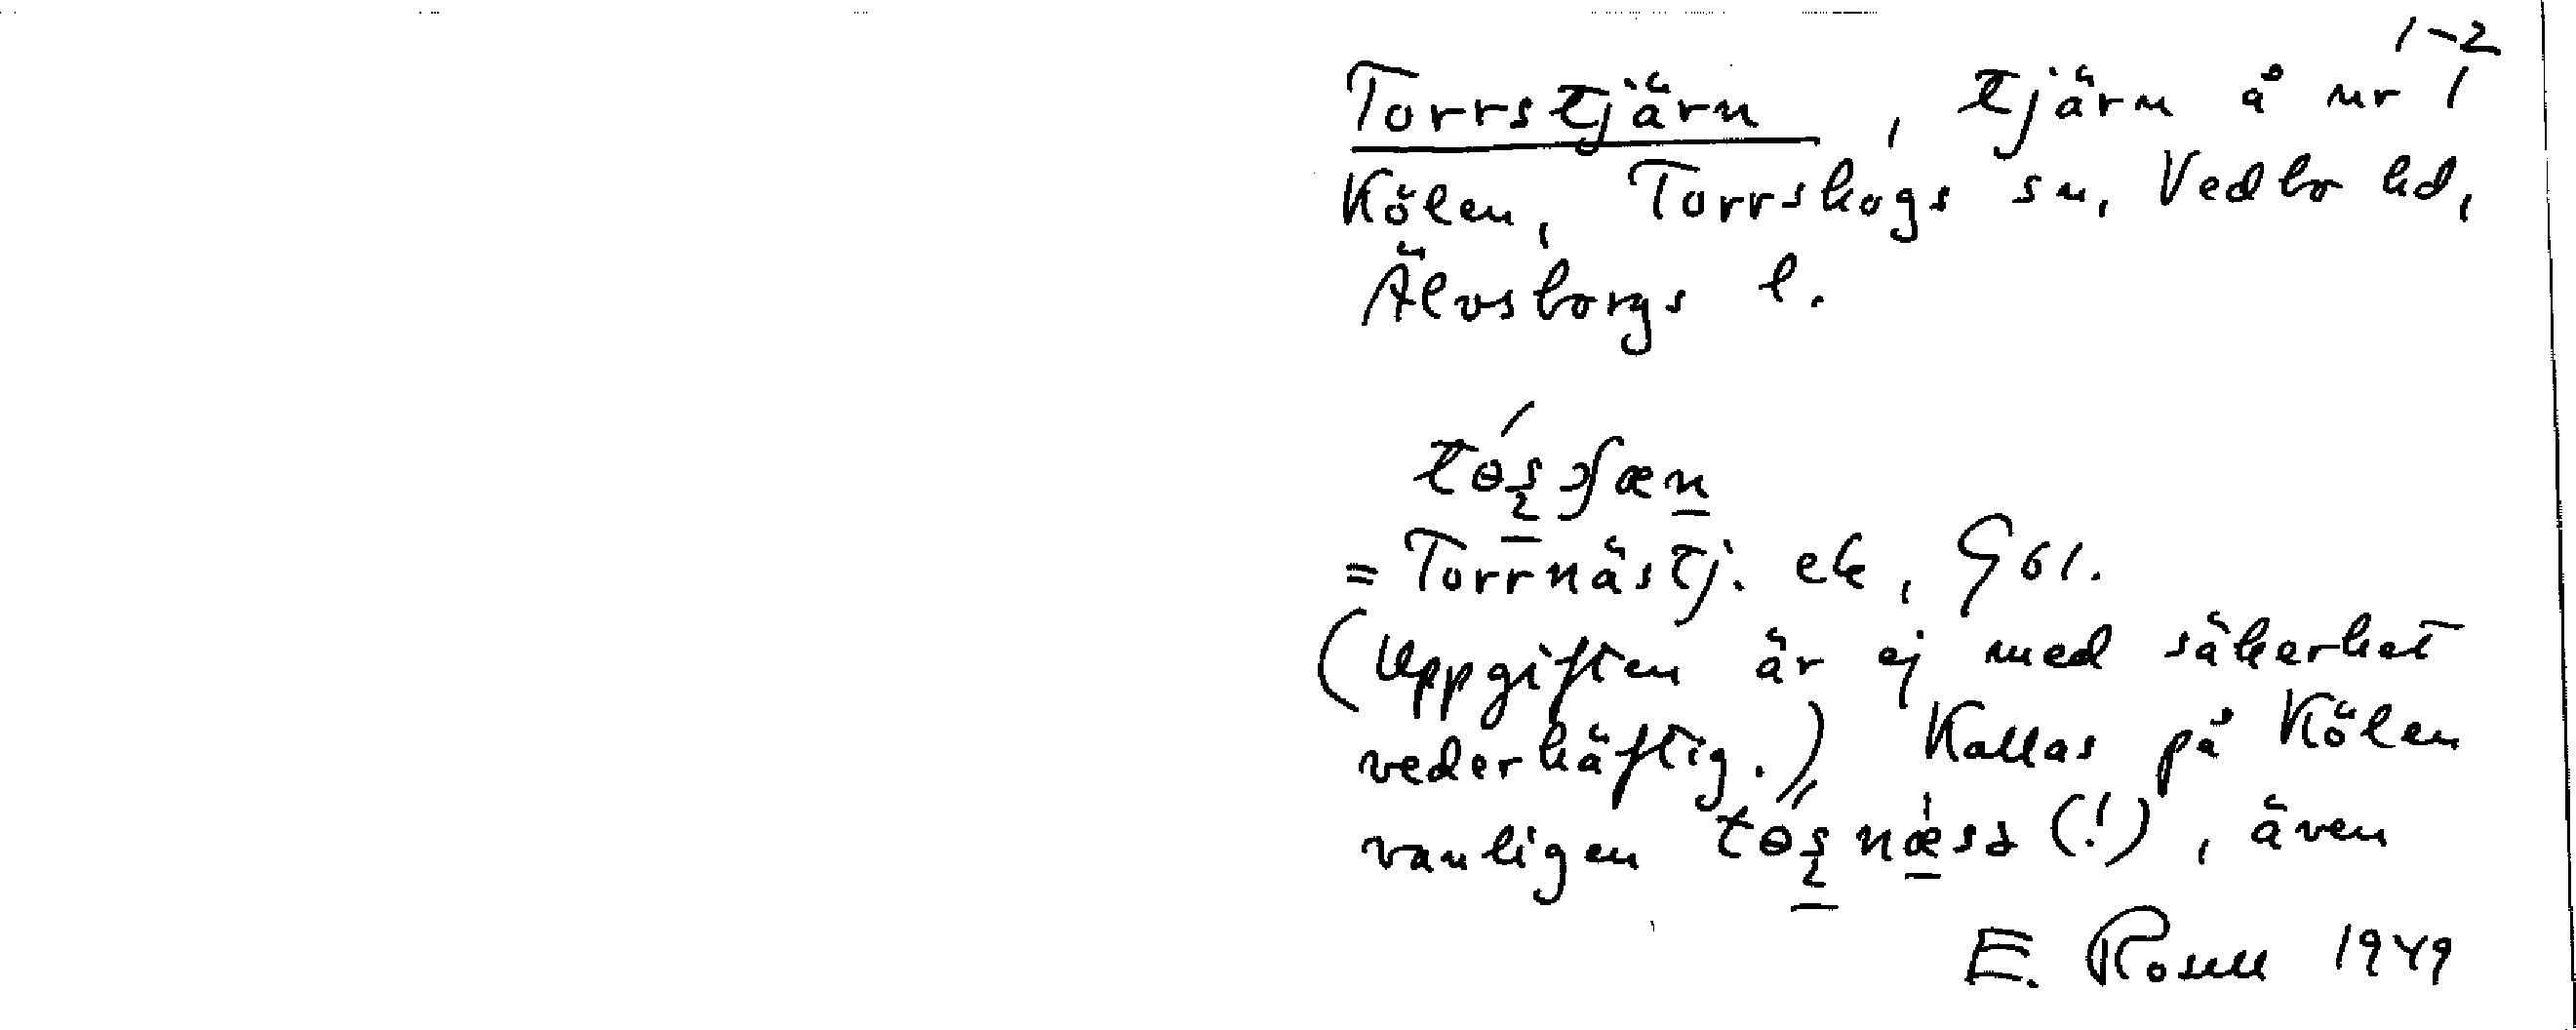 1-2
Torrstjärn, tjärn å nr 1
Kölen, Torrskogs sn, Vedbo hd,
Älvsborgs l.
= Torrnästj. ek, G 61.
(Uppgiften är ej med säkerhet
vederhäftig.) Kallas på Kölen
vanligen (!), även
E. Rosell 1949